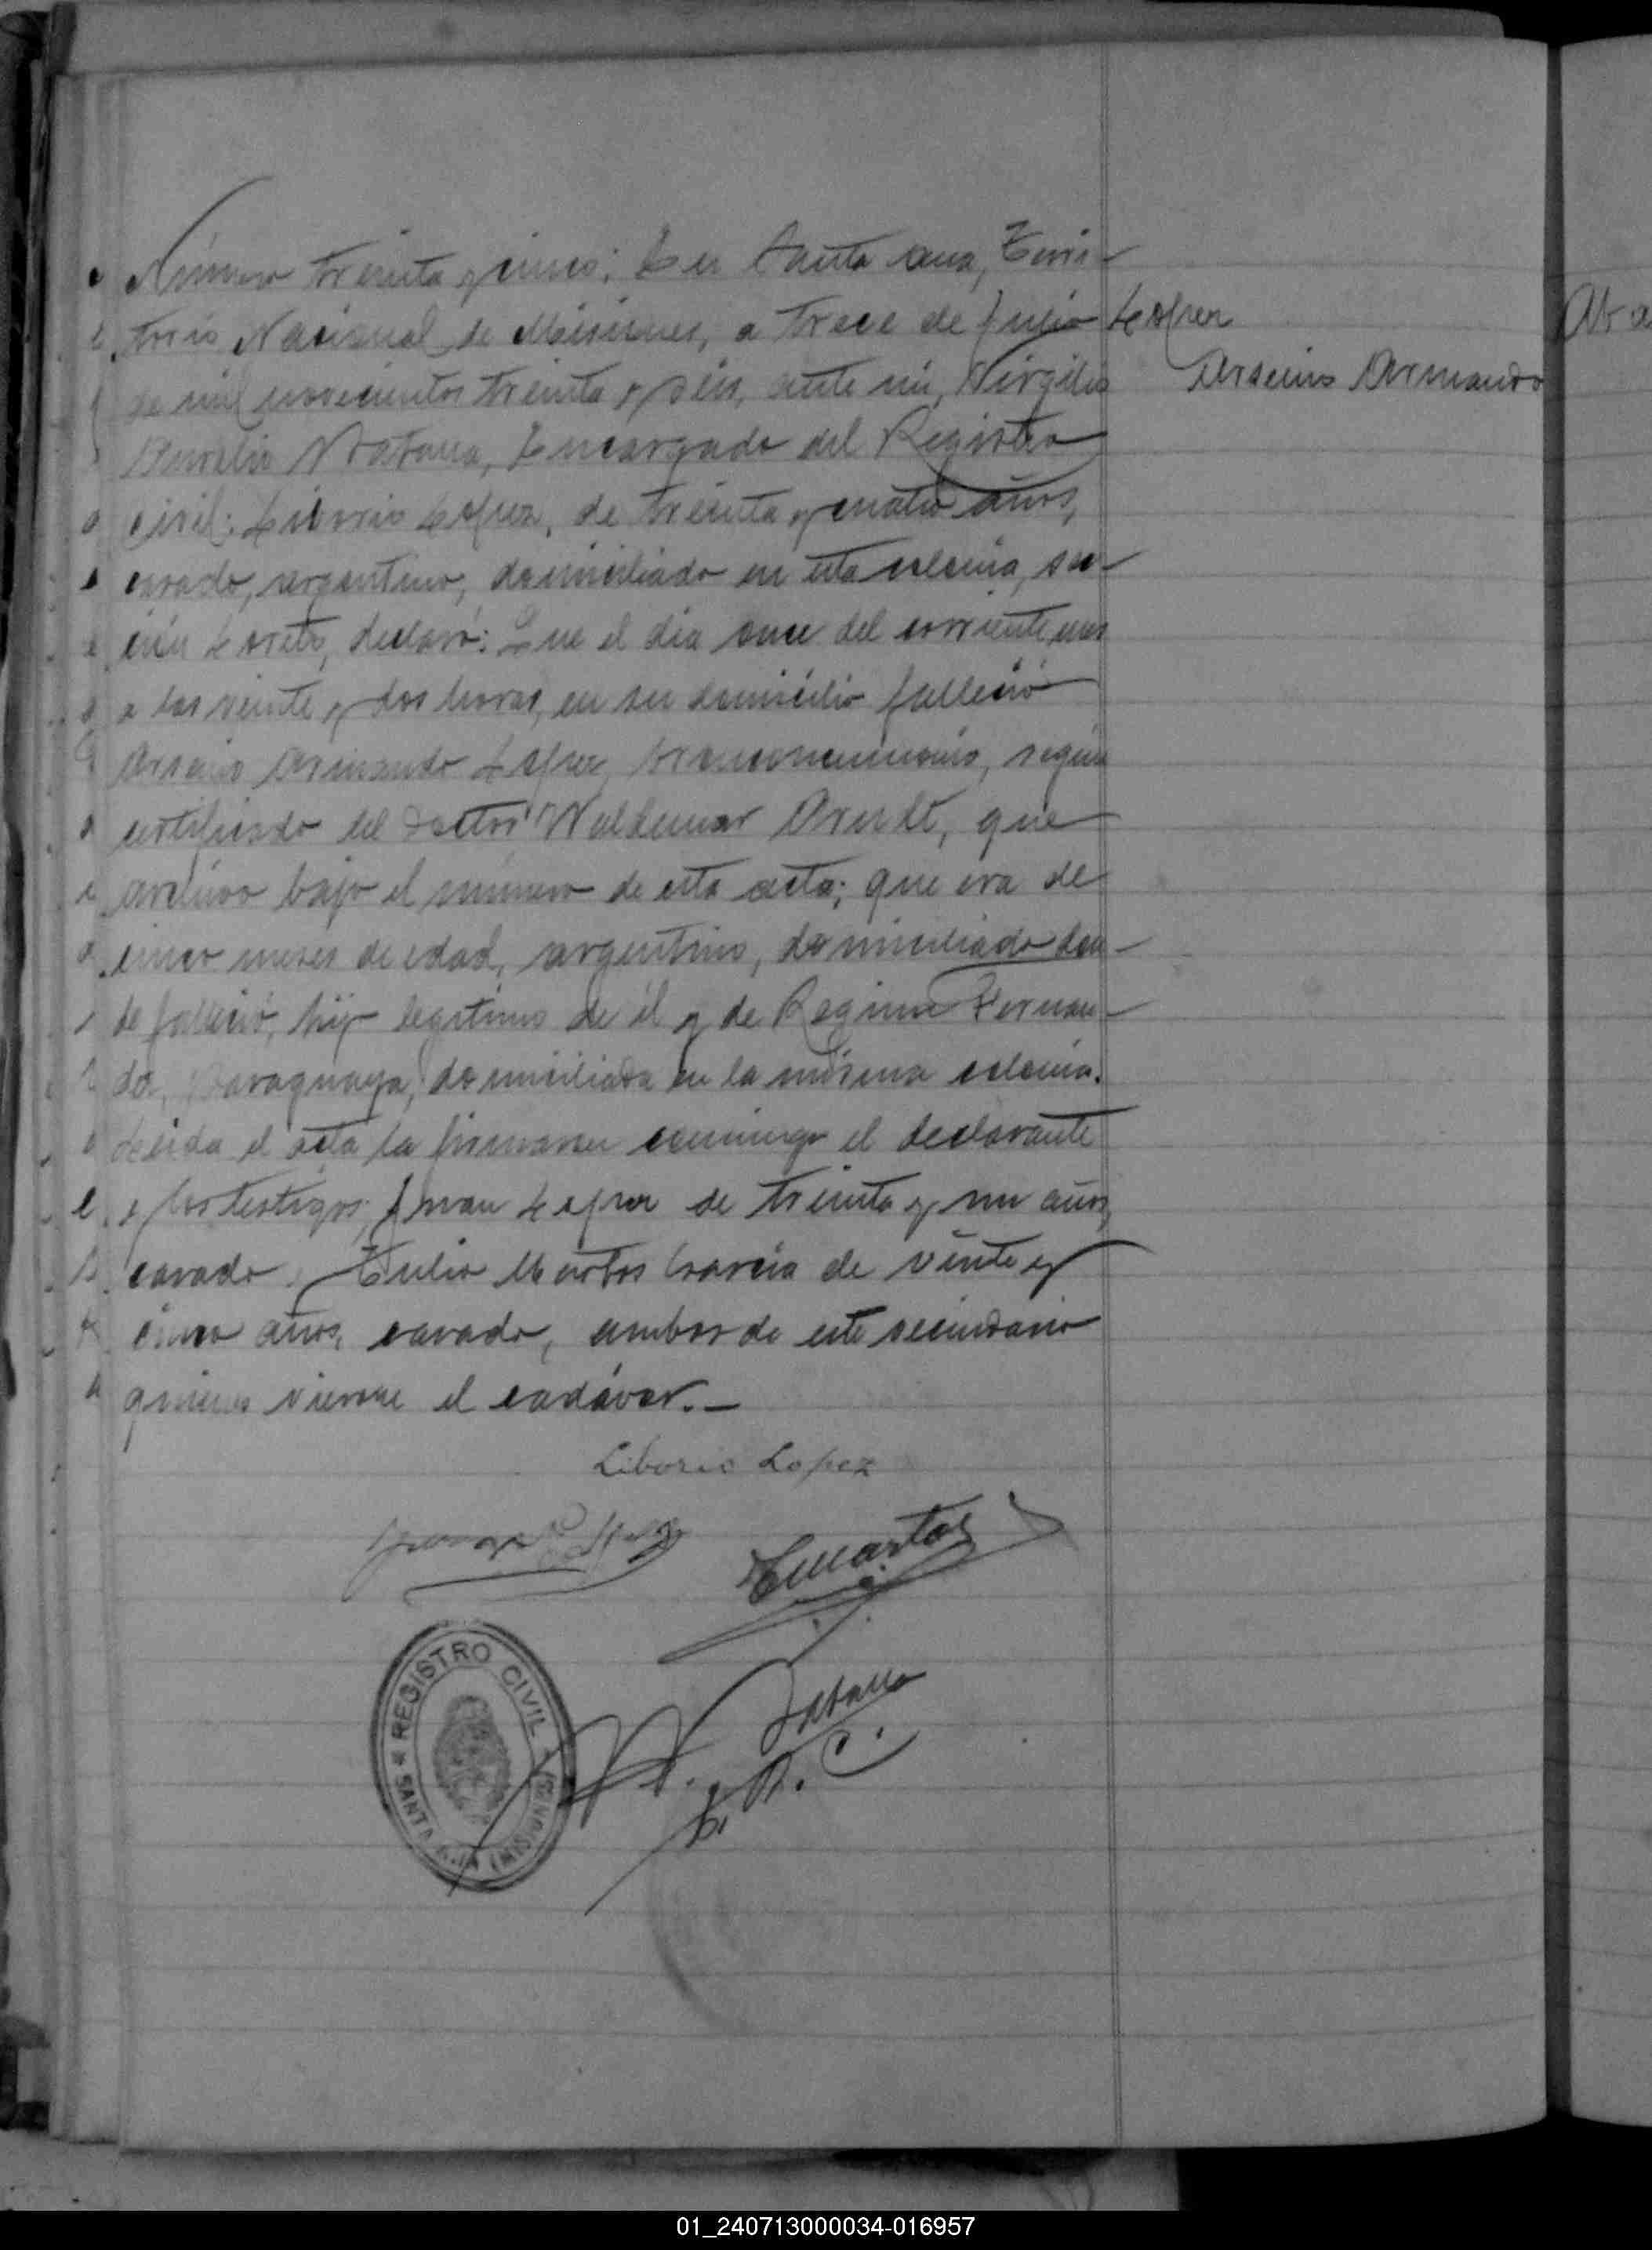 Número treinta y cinco: En Santa Ana, Terri-
torio Nacional de Misiones, a trece de Julio
de mil novecientos treinta y seis, ante mí, Virgilio
Aurelio Encargado del Registro
Civil: Liborio Lopez, de treinta y cuatro años,
casado, argentino, domiciliado en esta colonia, sec-
ción Loreto, declaró: Que el día once del corriente mes
a las veinte y dos horas, en su domicilio falleció
Arsenio Armando Lopez, bronconeumonía, según
certificado del doctor Waldemar Arendt, que
archivo bajo el número de esta acta; que era de
cinco meses de edad, argentino, domiciliado don-
de falleció, hijo legítimo de él y de Regina Fernan-
do, Paraguaya, domiciliada en la misma colonia.
Leída el acta la firmaron conmigo el declarante
y los testigos: Juan Lopez de treinta y un años,
casado y Tulio Martos García de veinte y
cinco años, casado, ambos de este vecindario
quienes vieron el cadáver.-
Lopez
Arsenio Armando
Liborio Lopez
TMartos
E. R. C.
REGISTRO CIVIL
SANTA ANA (MISIONES)
01_240713000034-016957